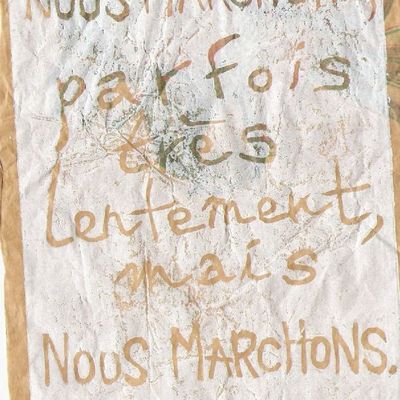 NOUS MARCHONS,
parfois
très
lentement,
mais
NOUS MARCHONS.